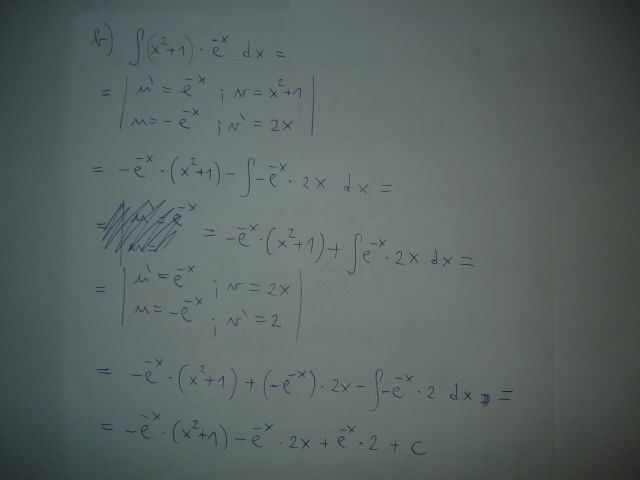 b) ∫(x²+1)·e⁻ˣ dx =
= | u' = e⁻ˣ ; v = x²+1 |
| u = -e⁻ˣ ; v' = 2x |
= -e⁻ˣ·(x²+1) - ∫-e⁻ˣ·2x dx =
= -e⁻ˣ·(x²+1) + ∫e⁻ˣ·2x dx =
= | u' = e⁻ˣ ; v = 2x |
| u = -e⁻ˣ ; v' = 2 |
= -e⁻ˣ·(x²+1) + (-e⁻ˣ)·2x - ∫-e⁻ˣ·2 dx =
= -e⁻ˣ·(x²+1) - e⁻ˣ·2x + e⁻ˣ·2 + c